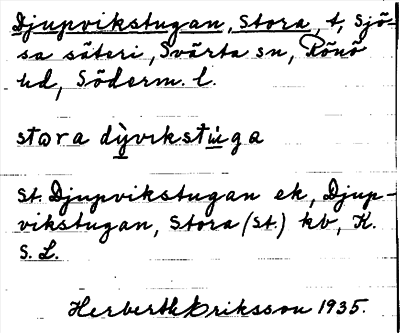 Djupvikstugan, Stora, t, Sjö-
sa säteri, Svärta sn, Rönö
hd, Söderm. l.
stora dỳvikstùga
St. Djupvikstugan ek, Djup-
vikstugan, Stora (St.) kb, K.
S. L.
Herberth Eriksson 1935.